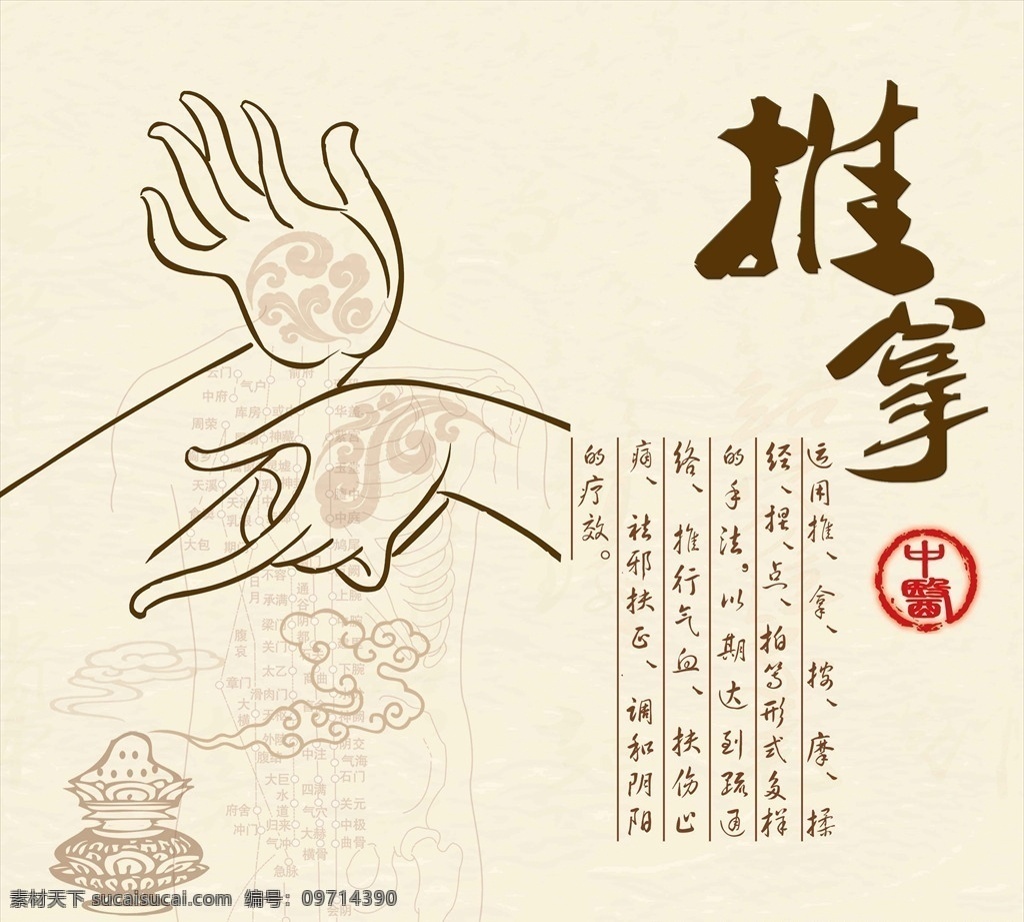 推拿
中醫
运用推、拿、按、摩、揉
经、捏、点、拍等形式多样
的手法。以期达到疏通
络、推行气血、扶伤止
痛、祛邪扶正、调和阴阳
的疗效。
云门
俞府
中府
气户
库房
华盖
周荣
神藏
天溪
中庭
大包
鸠尾
不容
日月
承满
通谷
上脘
梁门
阴都
腹哀
关门
太乙
下脘
章门
滑肉门
大横
外陵
阴交
中注
气海
石门
大巨
水道
四满
府舍
气穴
关元
冲门
归来
大赫
中极
气冲
横骨
曲骨
急脉
会阴
素材天下 sucaisucai.com 编号：09714390